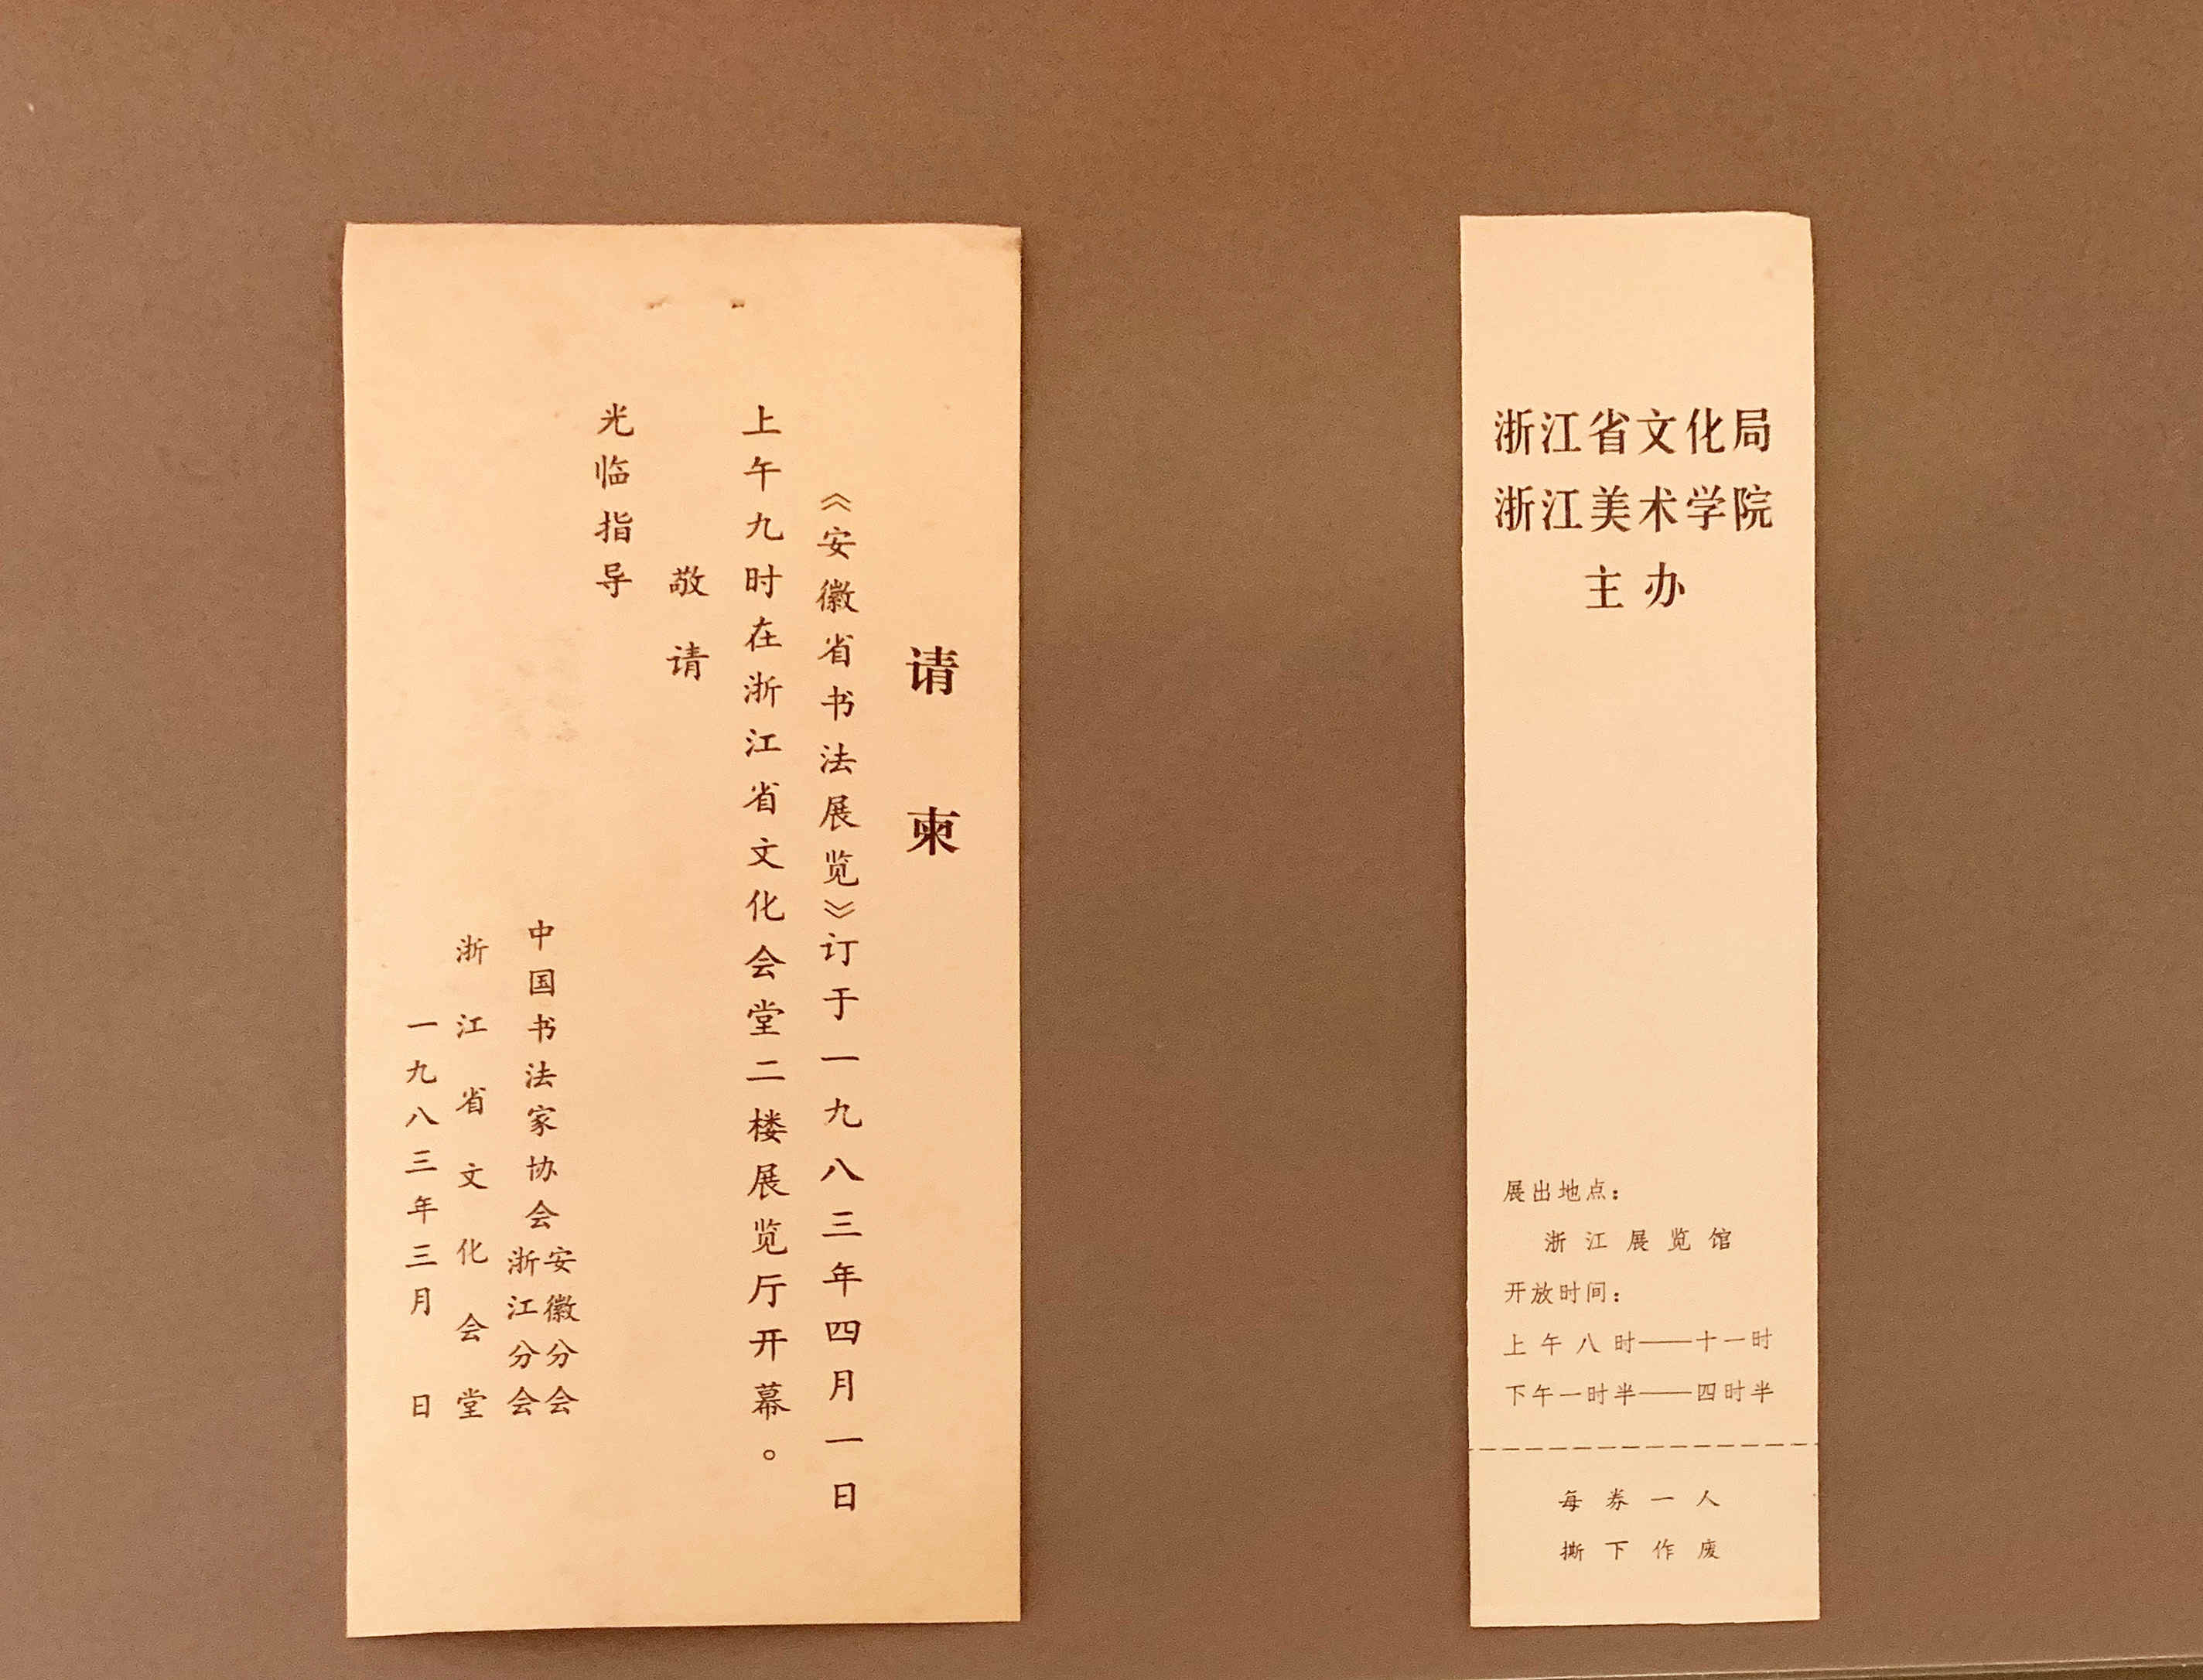 请柬
《安徽省书法展览》订于一九八三年四月一日
上午九时在浙江省文化会堂二楼展览厅开幕。
敬请
光临指导
中国书法家协会安徽分会
浙江分会
浙江省文化会堂
一九八三年三月 日
浙江省文化局
浙江美术学院
主办
展出地点：
浙江展览馆
开放时间：
上午八时——十一时
下午一时半——四时半
每券一人
撕下作废